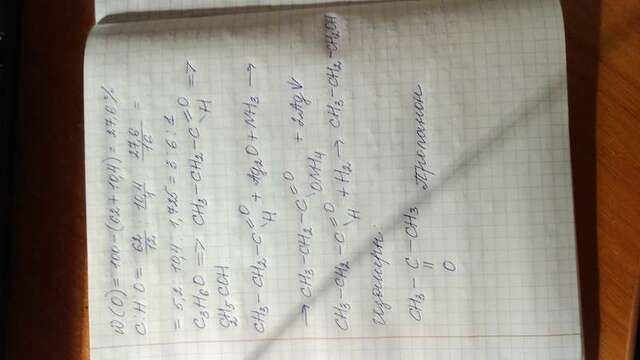 W(O) = 100 - (62 + 10,4) = 27,6 %
C : H : O = 62/12 : 10,4/1 : 27,6/16 =
= 5,2 : 10,4 : 1,725 = 3 : 6 : 1
C3H6O => CH3 - CH2 - C =O H =>
C2H5COH
CH3 - CH2 - C =O H + Ag2O + NH3 →
→ CH3 - CH2 - C =O ONH4 + 2Ag↓
CH3 - CH2 - C =O H + H2 → CH3 - CH2 - CH2OH
изомеры:
CH3 - C - CH3 Пропанон
||
O